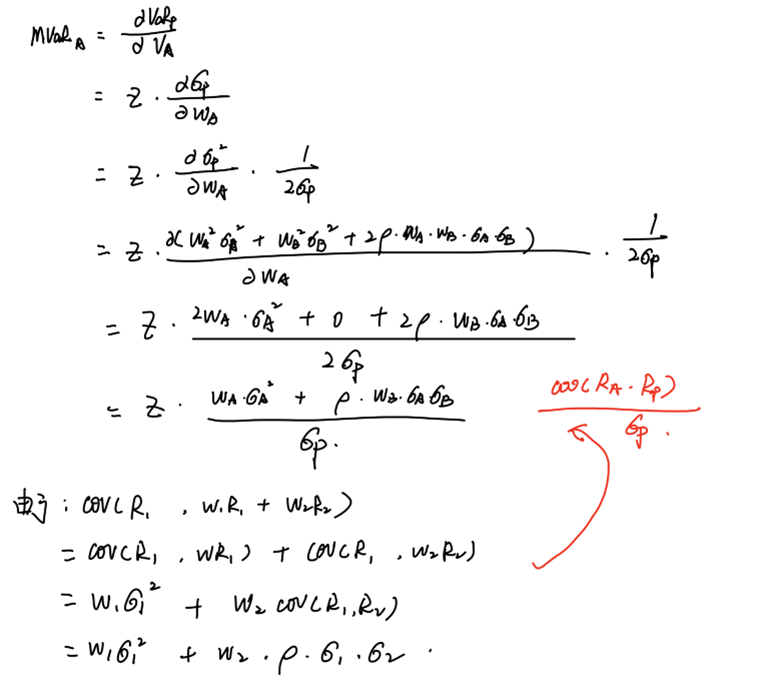 MVaR_A = ∂VaR_P / ∂V_A
= Z · ∂σ_P / ∂W_A
= Z · ∂σ_P² / ∂W_A · 1 / 2σ_P
= Z · ∂(W_A²σ_A² + W_B²σ_B² + 2ρ·W_A·W_B·σ_A·σ_B) / ∂W_A · 1 / 2σ_P
= Z · 2W_A·σ_A² + 0 + 2ρ·W_B·σ_A·σ_B / 2σ_P
= Z · W_A·σ_A² + ρ·W_B·σ_A σ_B / σ_P.
cov(R_A·R_P) / σ_P.
由于: cov(R₁, W₁R₁ + W₂R₂)
= cov(R₁, WR₁) + cov(R₁, W₂R₂)
= W₁σ₁² + W₂ cov(R₁,R₂)
= W₁σ₁² + W₂·ρ·σ₁·σ₂.